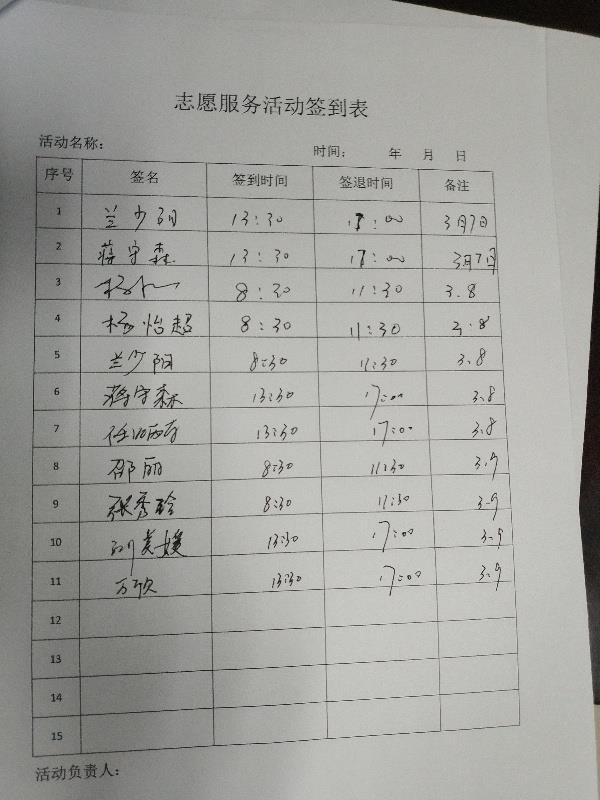 志愿服务活动签到表
活动名称： 时间： 年 月 日
序号 签名 签到时间 签退时间 备注
1 兰少阳 13:30 17:00 3月7日
2 蒋守森 13:30 17:00 3月7日
3 8:30 11:30 3.8
4 杨怡超 8:30 11:30 3.8
5 兰少阳 8:30 11:30 3.8
6 蒋守森 13:30 17:00 3.8
7 13:30 17:00 3.8
8 邵丽 8:30 11:30 3.9
9 张秀玲 8:30 11:30 3.9
10 13:30 17:00 3.9
11 万欣 13:30 17:00 3.9
12
13
14
15
活动负责人：